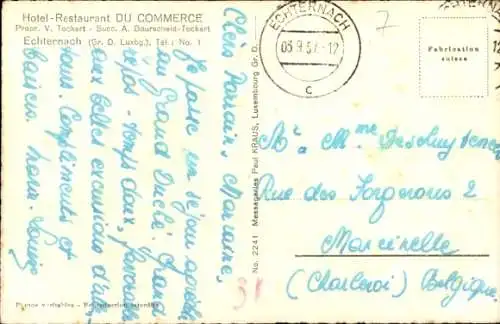 Hotel-Restaurant DU COMMERCE
Propr. V. Tockert - Succ. A. Daurscheid-Tockert
Echternach (Gr. D. Luxbg.), Tél.: No. 1
Chers Parrain, Marraine,
Je passe un séjour agréable
au Grand Duché. Grand
repos - temps doux, favorable
aux belles excursions d'ici.
Bons compliments et
baisers. Louis
Photos véritables - Reproduction interdite
No. 2241 Messageries Paul KRAUS, Luxembourg Gr. D.
ECHTERNACH
03.9.57-12
C
7
Fabrication
suisse
Mr et Mme
Rue des Forgerons 2
Marcinelle
(Charleroi) Belgique